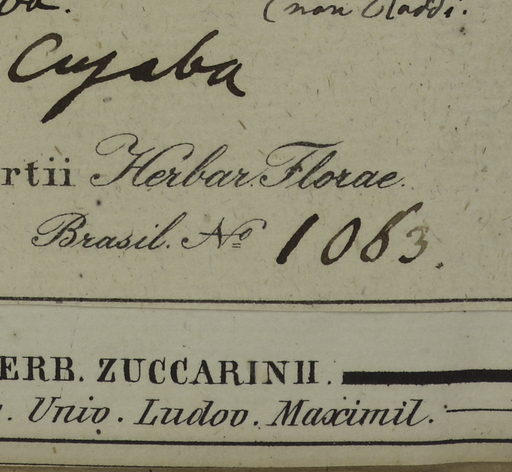 (non Raddi.
Cujaba
rtii Herbar. Florae
Brasil. No 1063.
ERB. ZUCCARINII.
. Univ. Ludov. Maximil.